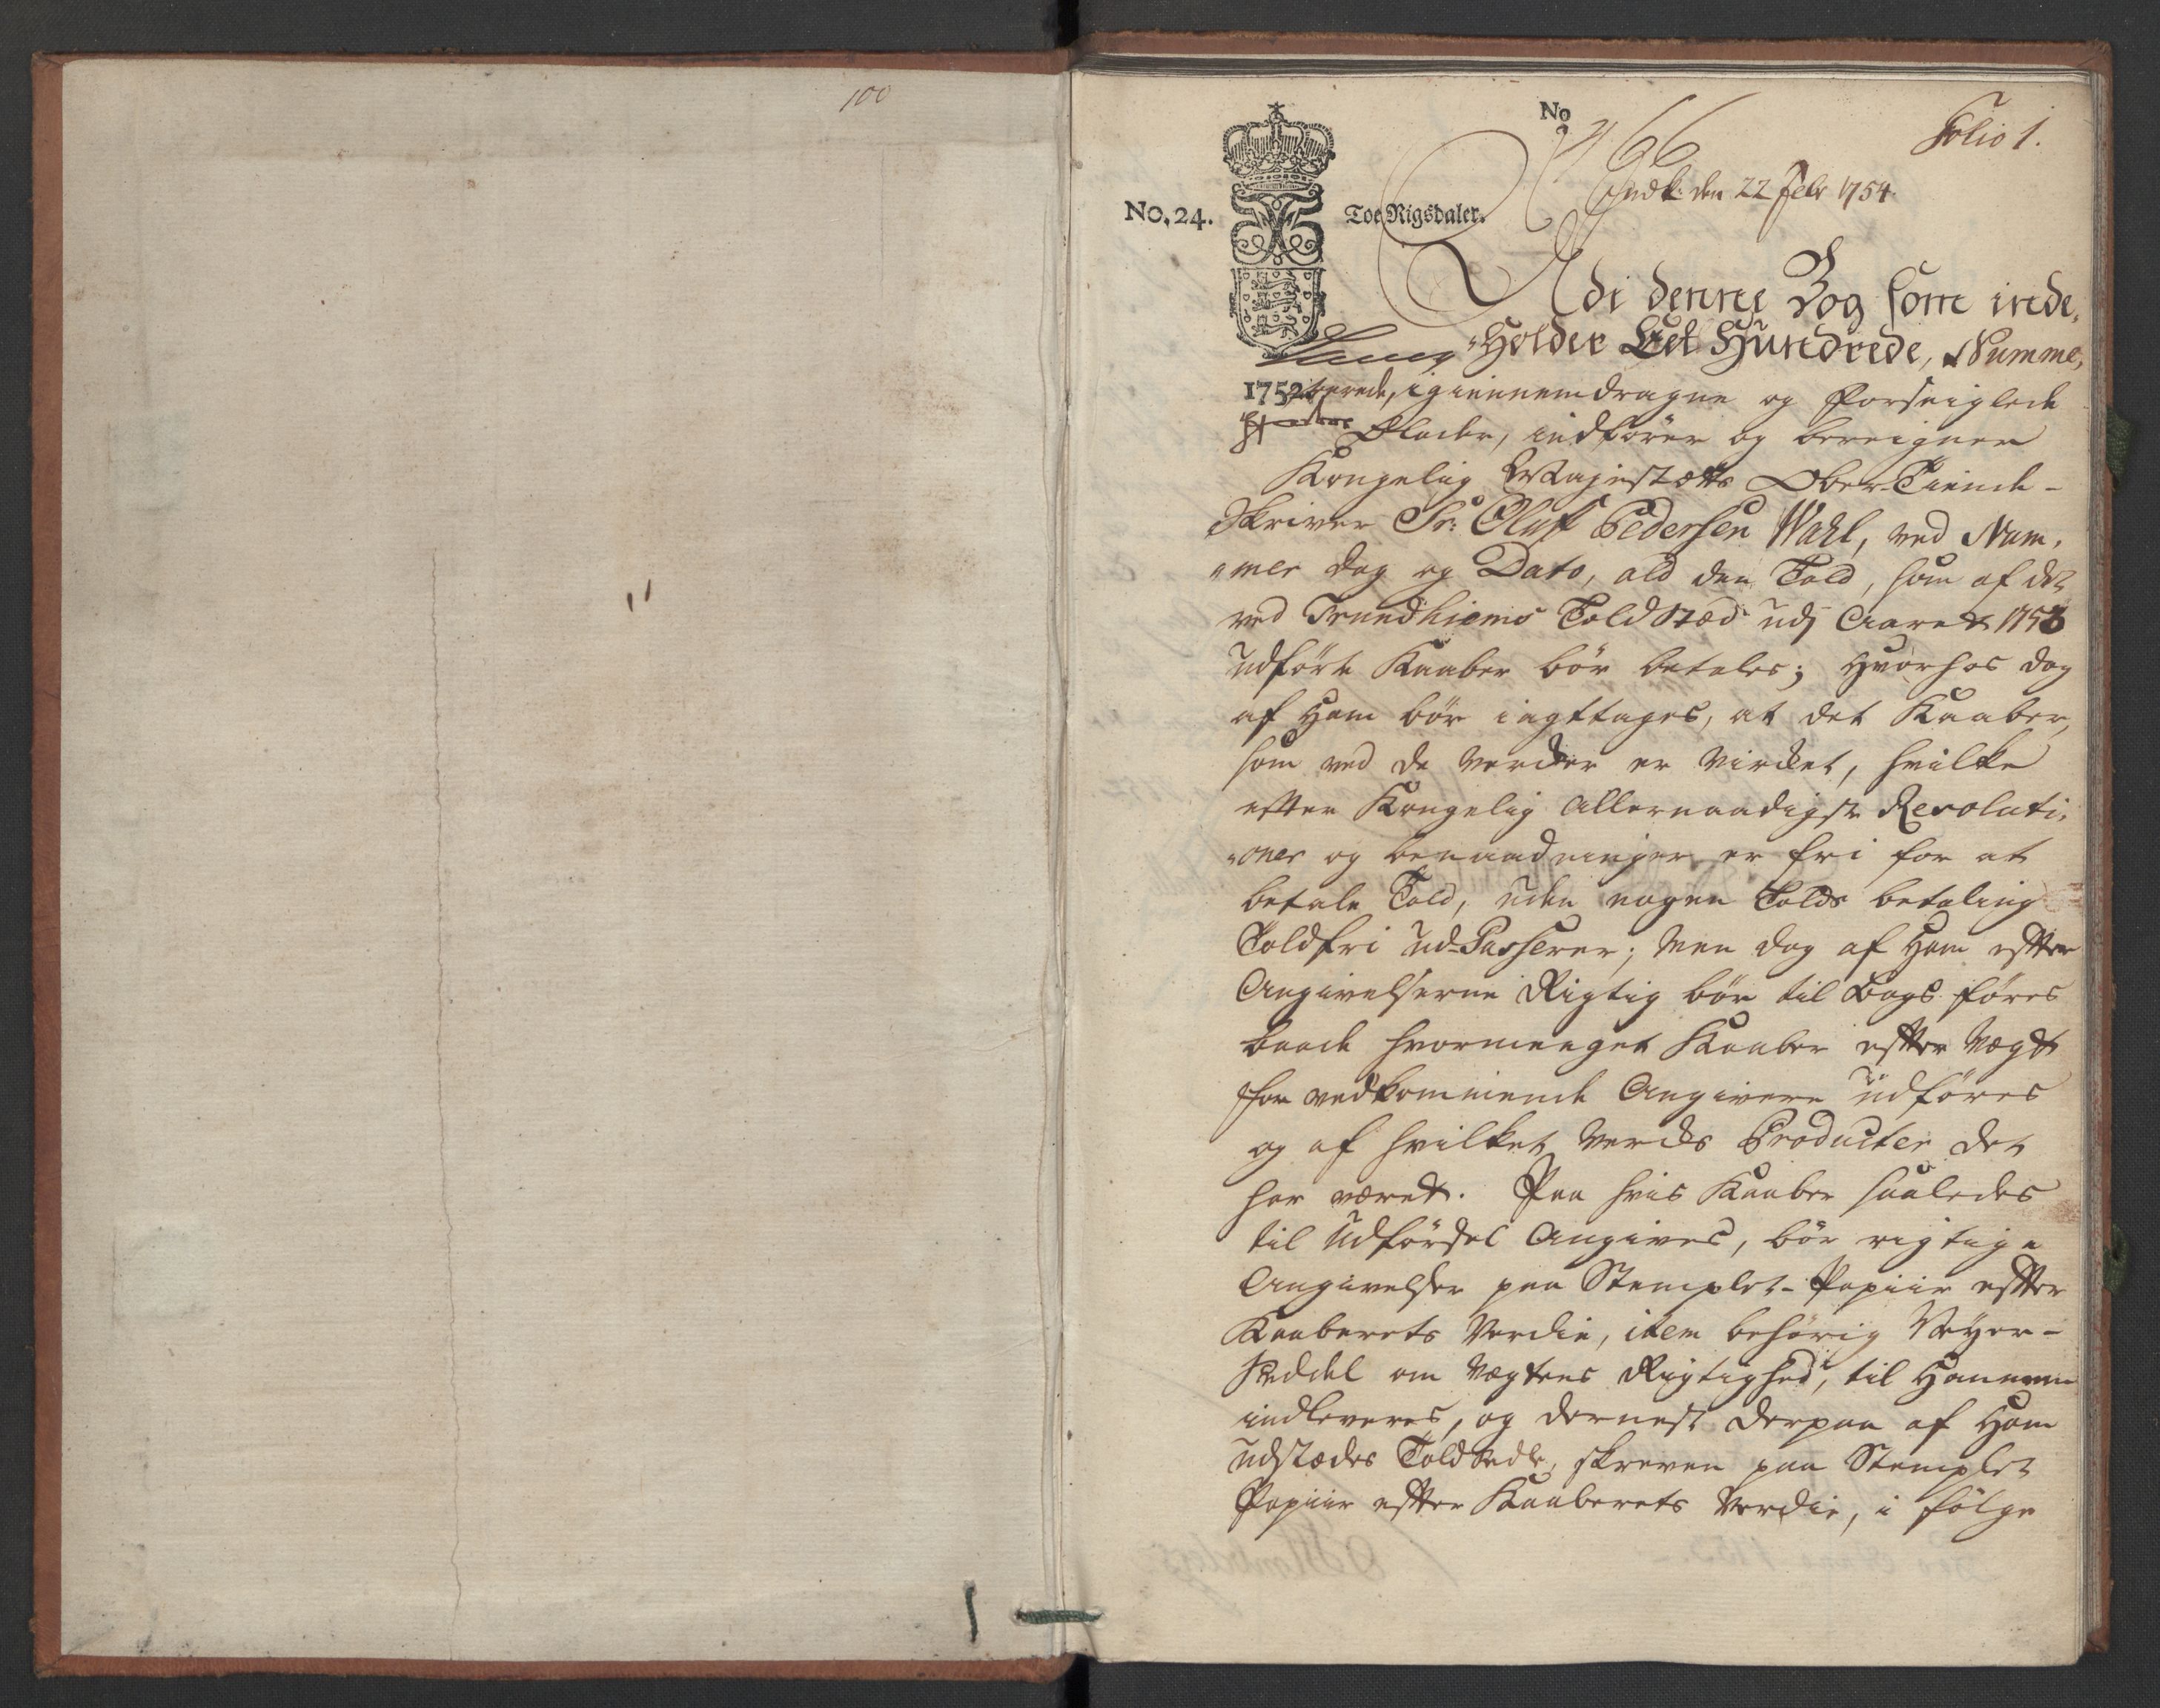 100
No
466
Folio 1.
Indk: den 22 Febr 1754.
No. 24.
Toe Rigsdaler.
Udi denne Bog som inde,
"Holder Eet Hundrede, Numme,
1752
"rerede, igiennemdragne og forseiglede
Blader, indfører og beregner
Kongelig Mayestætts Ober-Tiende-
Skriver Sr: Oluf Pedersen Wahl, ved Num,
"mer Dag og Dato, ald den Told, som af det
ved Trundhiems Told Stæd udj Aaret 1753
udførte Kaaber bør betales; Hvorhos dog
af Ham bør iagttages, at det Kaaber,
som ved de Verker er virket, hvilke
efter Kongelig Allernaadigste Resoluti,
"oner og benaadninger er fri for at
betale Told, uden nogen Tolds betaling
Toldfri ud-Passerer; Men dog af Ham efter
Angivelserne Rigtig bør til Bogs føres
baade hvormeeget Kaaber efter Vægt
for vedkommende Angivere udføres
og af hvilket Verks Producter det
har været. Paa hvis Kaaber saaledes
til Udførsel Angives, bør rigtige
Angivelser paa Stemplet-Papiir efter
Kaaberets Verdie, item behørig Veyer-
Seddel om Vægtens Rigtighed, til Hannem
indleveres, og dernest derpaa af Ham
udstædes Toldsedle, skreven paa Stemplet
Papiir efter Kaaberets Verdie, i følge